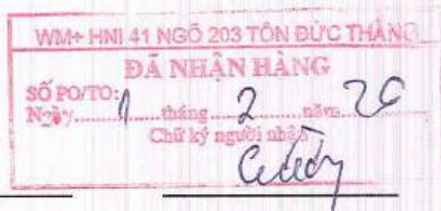 WM+ HNI 41 NGÕ 203 TÔN ĐỨC THẮNG
ĐÃ NHẬN HÀNG
SỐ PO/TO:
Ngày 1 tháng 2 năm 26
Chữ ký người nhận